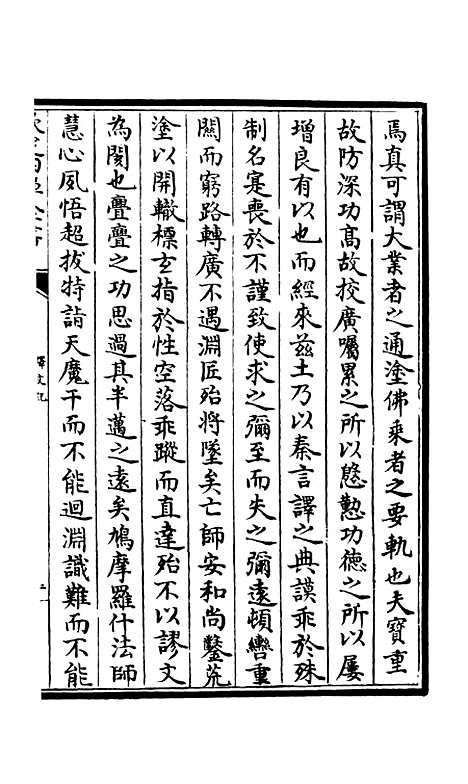 焉真可謂大業者之通塗佛乘者之要軌也夫寳重
故防深功髙故校廣囑累之所以慇懃功徳之所以屢
増良有以也而經來兹土乃以秦言譯之典謨乖於殊
制名寔喪於不謹致使求之彌至而失之彌遠頓轡重
關而窮路轉廣不遇淵匠殆將墜矣亡師安和尚鑿荒
塗以開轍標𤣥指於性空落乖蹤而直達殆不以謬文
為閡也亹亹之功思過其半邁之逺矣鳩摩羅什法師
慧心夙悟超拔特詣天魔干而不能迴淵識難而不能
釋文紀